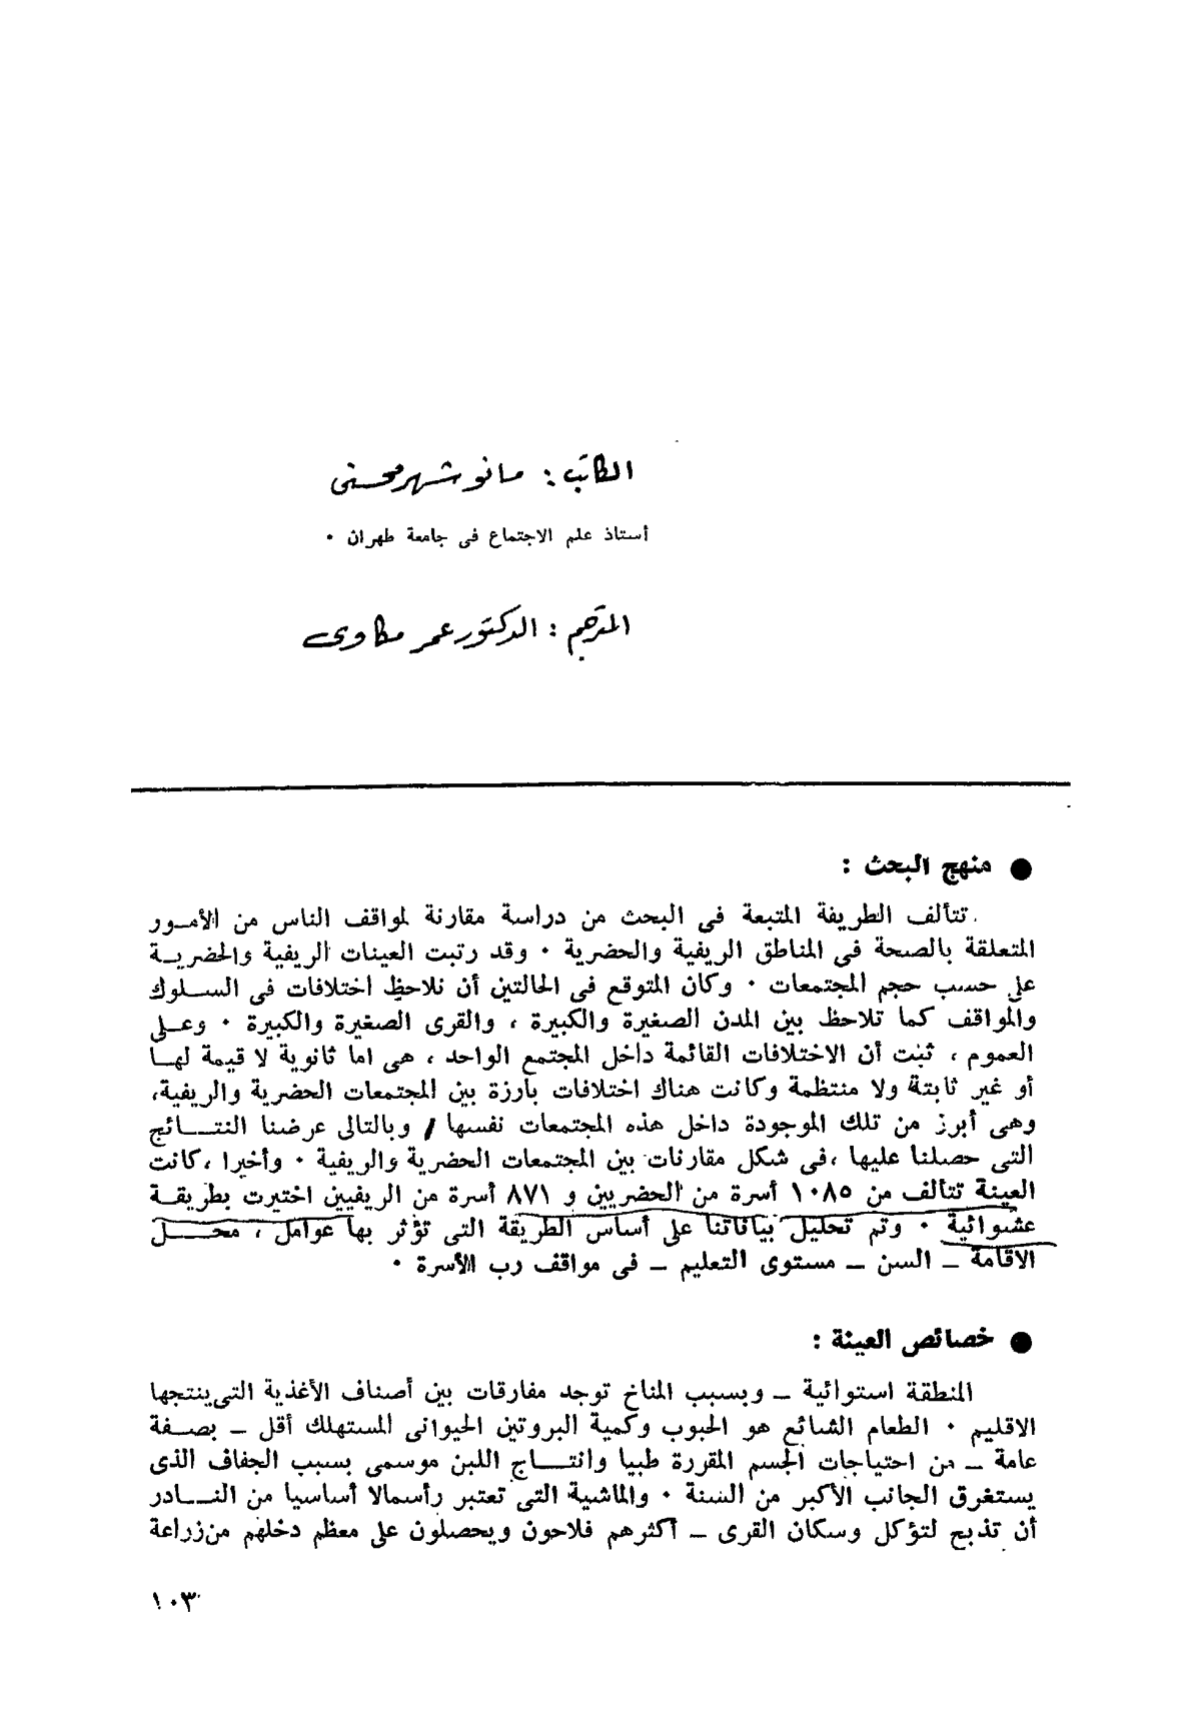 الكاتب : مانوشهر محسنى
أستاذ علم الاجتماع فى جامعة طهران ٠
المترجم : الدكتور عمر مكاوى
● منهج البحث :
تتألف الطريقة المتبعة فى البحث من دراسة مقارنة لمواقف الناس من الأمـور
المتعلقة بالصحة فى المناطق الريفية والحضرية ٠ وقد رتبت العينات الريفية والحضريـة
على حسب حجم المجتمعات ٠ وكان المتوقع فى الحالتين أن نلاحظ اختلافات فى السـلوك
والمواقف كما تلاحظ بين المدن الصغيرة والكبيرة ، والقرى الصغيرة والكبيرة ٠ وعـلى
العموم ، ثبت أن الاختلافات القائمة داخل المجتمع الواحد ، هى اما ثانوية لا قيمة لهـا
أو غير ثابتة ولا منتظمة وكانت هناك اختلافات بارزة بين المجتمعات الحضرية والريفية،
وهى أبرز من تلك الموجودة داخل هذه المجتمعات نفسها / وبالتالى عرضنا النتـــائج
التى حصلنا عليها ،فى شكل مقارنات بين المجتمعات الحضرية والريفية ٠ وأخيرا ،كانت
العينة تتألف من ١٠٨٥ أسرة من الحضريين و ٨٧١ أسرة من الريفيين اختيرت بطريقـة
عشوائية ٠ وتم تحليل بياناتنا على أساس الطريقة التى تؤثر بها عوامل ، محـــل
الاقامة ـ السن ـ مستوى التعليم ـ فى مواقف رب الأسرة ٠
● خصائص العينة :
المنطقة استوائية ـ وبسبب المناخ توجد مفارقات بين أصناف الأغذية التى ينتجها
الاقليم ٠ الطعام الشائع هو الحبوب وكمية البروتين الحيوانى المستهلك أقل ـ بصـفة
عامة ـ من احتياجات الجسم المقررة طبيا وانتـــاج اللبن موسمى بسبب الجفاف الذى
يستغرق الجانب الأكبر من السنة ٠ والماشية التى تعتبر رأسمالا أساسيا من النـــادر
أن تذبح لتؤكل وسكان القرى ـ أكثرهم فلاحون ويحصلون على معظم دخلهم من زراعة
١٠٣